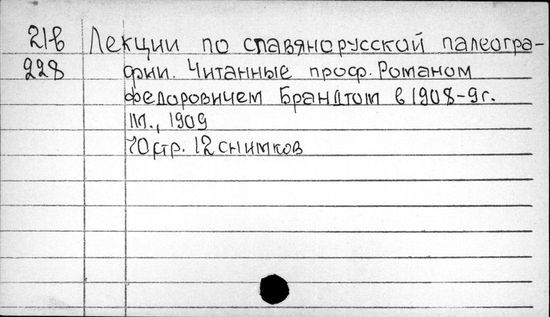 21б Лекции по славянорусской палеогра-
228 фии. Читанные проф. Романом
Федоровичем Брандтом в 1908-9 г.
М., 1909
70 стр. 12 снимков